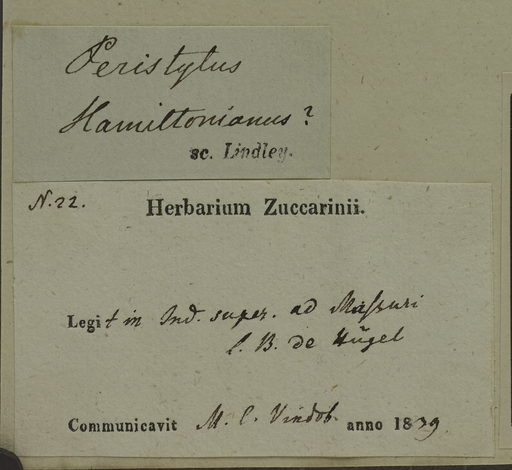 Peristylus
Hamiltonianus?
sc. Lindley.
N. 22.
Herbarium Zuccarinii.
Legit in Ind. super. ad Maſsuri
l. B. de Hügel
Communicavit M. C. Vindob. anno 1839